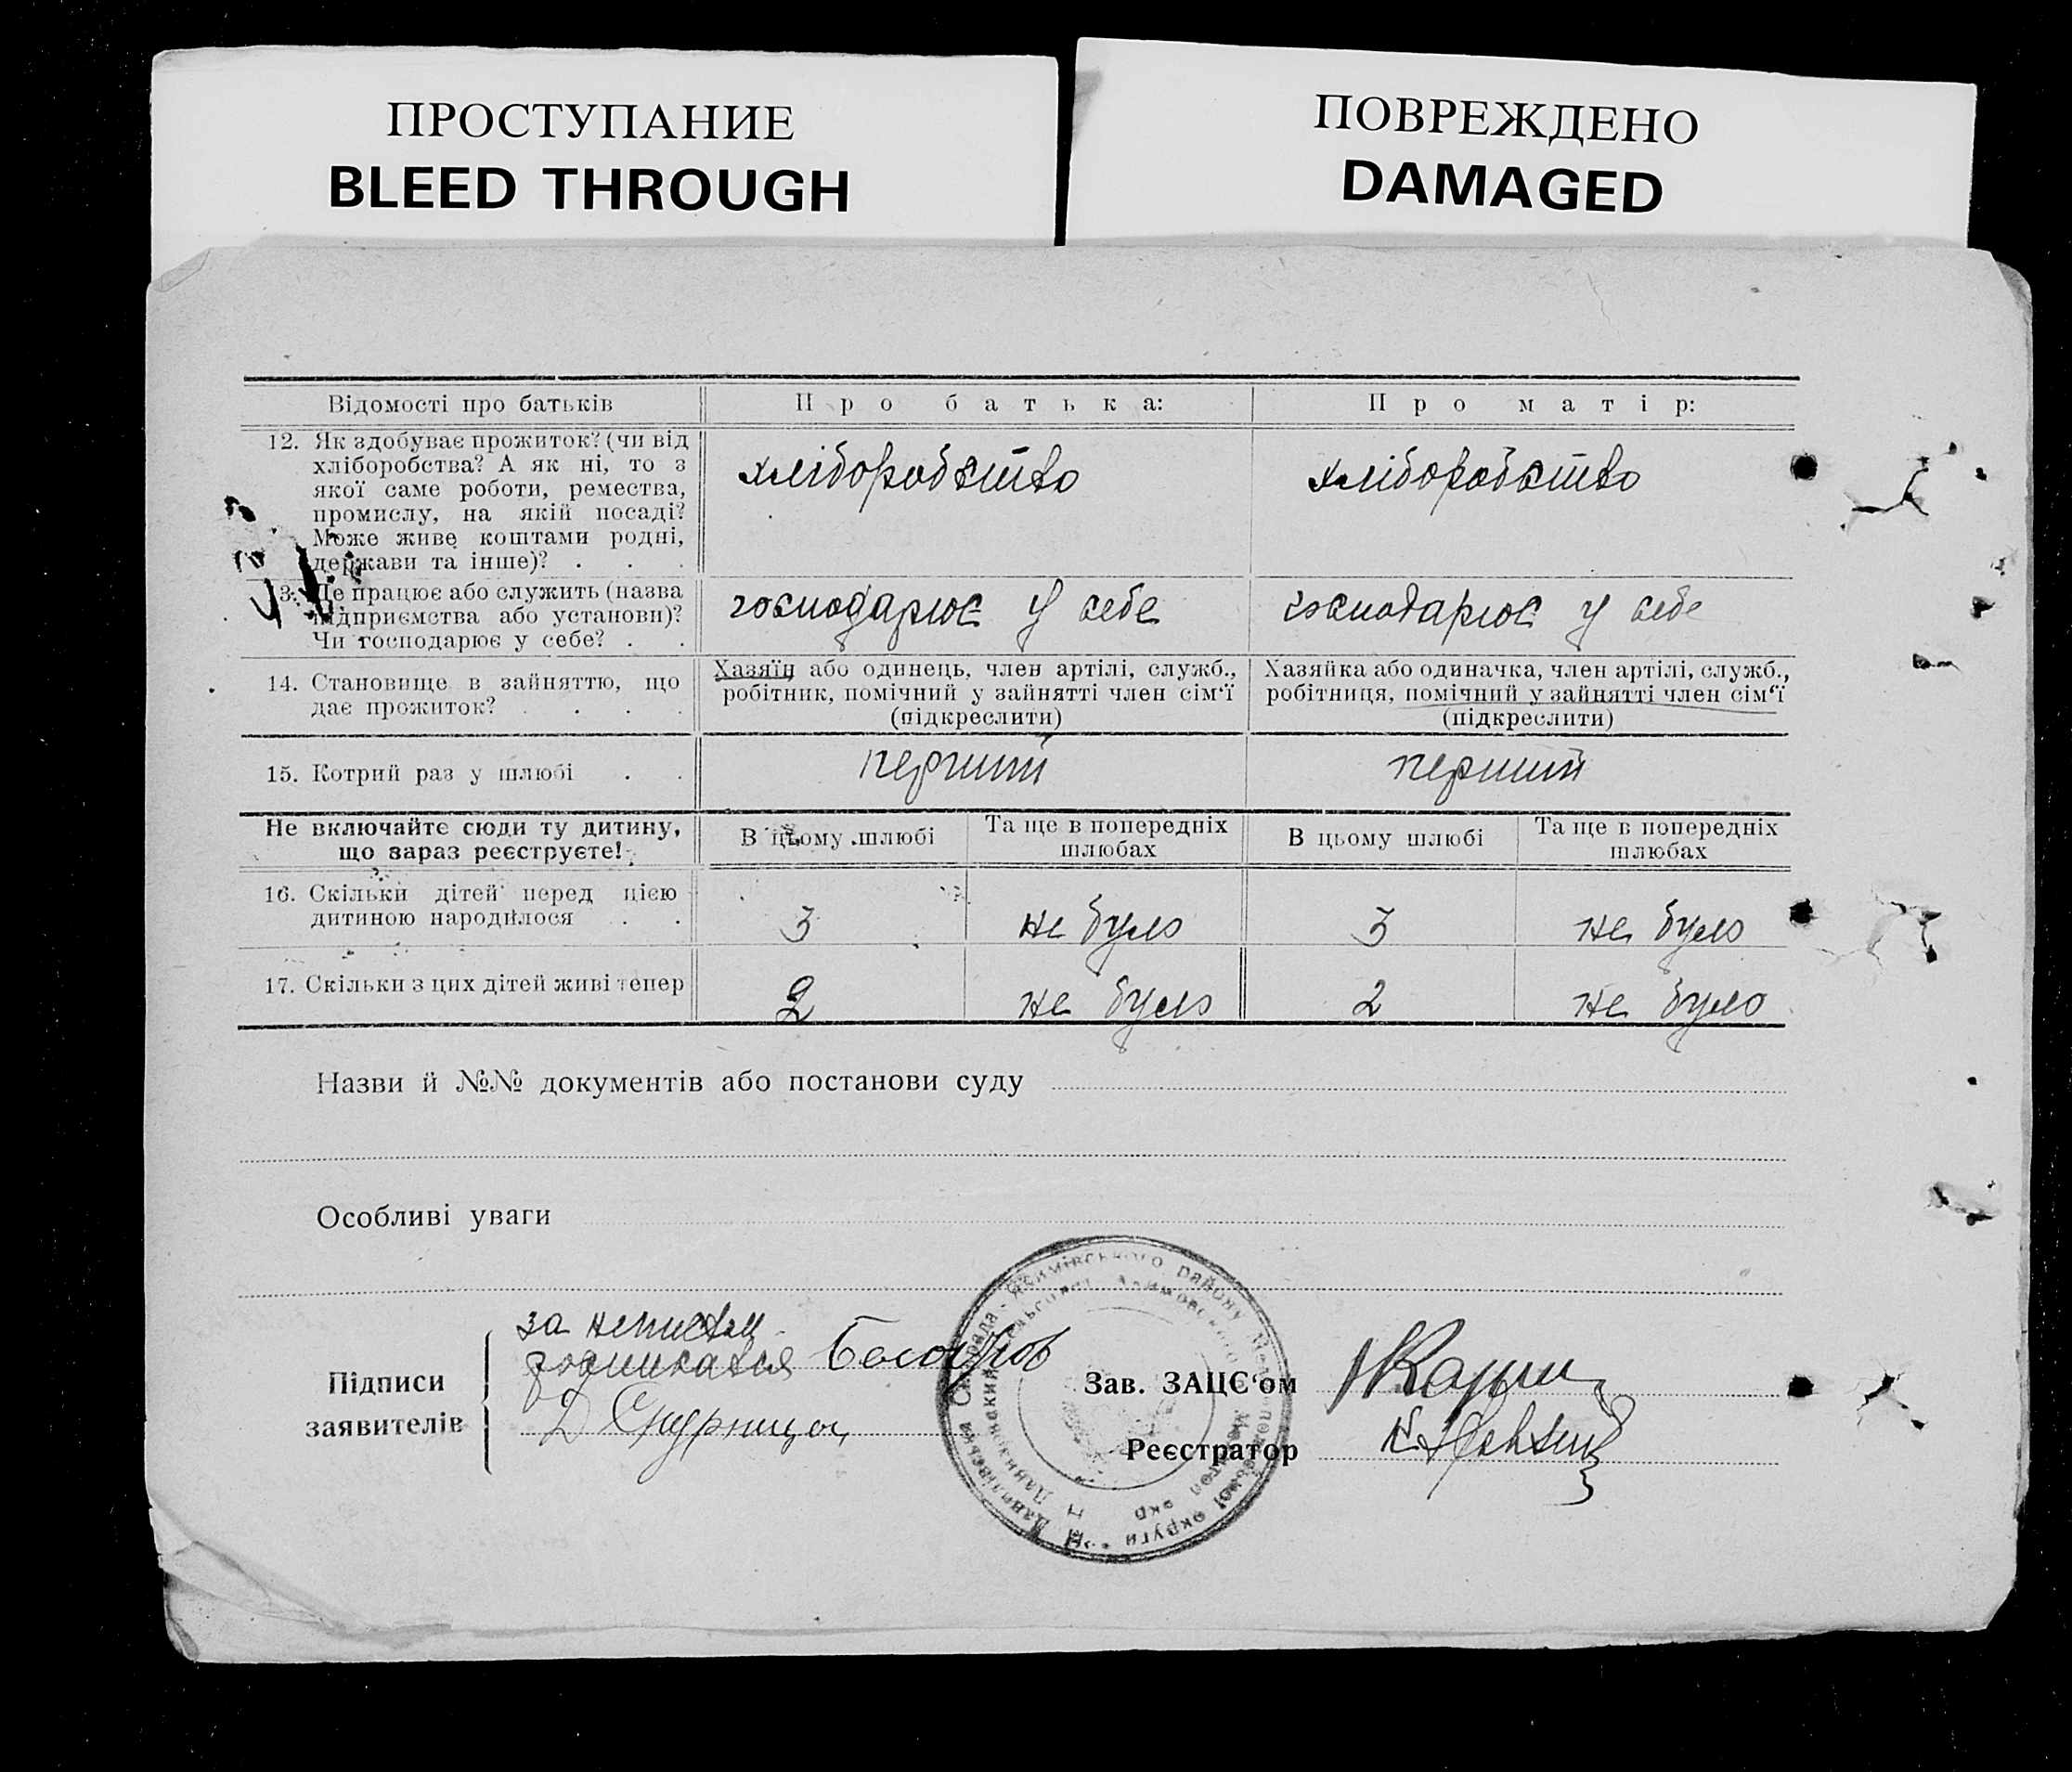 ПРОСТУПАНИЕ
BLEED THROUGH
ПОВРЕЖДЕНО
DAMAGED
Відомості про батьків
Про батька:
Про матір:
12. Як здобуває прожиток? (чи від
хліборобства? А як ні, то з
якої саме роботи, ремества,
промислу, на якій посаді?
Може живе коштами родні,
держави та інше)? . . .
хліборобство
хліборобство
13. Де працює або служить (назва
підприємства або установи)?
Чи господарює у себе? . .
господарює у себе
господарює у себе
14. Становище в зайняттю, що
дає прожиток? . . . .
Хазяїн або одинець, член артілі, служб.,
робітник, помічний у зайнятті член сім‘ї
(підкреслити)
Хазяйка або одиначка, член артілі, служб.,
робітниця, помічний у зайнятті член сім‘ї
(підкреслити)
15. Котрий раз у шлюбі . .
перший
перший
Не включайте сюди ту дитину,
що зараз реєструєте!
В цьому шлюбі
Та ще в попередніх
шлюбах
В цьому шлюбі
Та ще в попередніх
шлюбах
16. Скільки дітей перед цією
дитиною народилося . .
3
не було
3
не було
17. Скільки з цих дітей живі тепер
2
не було
2
не було
Назви й №№ документів або постанови суду
Особливі уваги
Підписи
заявителів
за
Зав. ЗАЦС‘ом
Реєстратор
Данилівська Сільрада - Якимівського району Мелітопольської округи